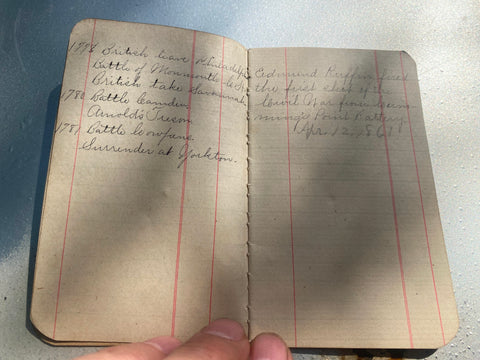 1778 British leave Philadelphia
Battle of Monmouth
British take Savannah
1780 Battle Camden
Arnolds Treson
1781 Battle Cowpens.
Surrender at Yorkton.
Eidmund Ruffin fired
the first shot of the
Civil War from
Point Battery
Apr. 12, 1861